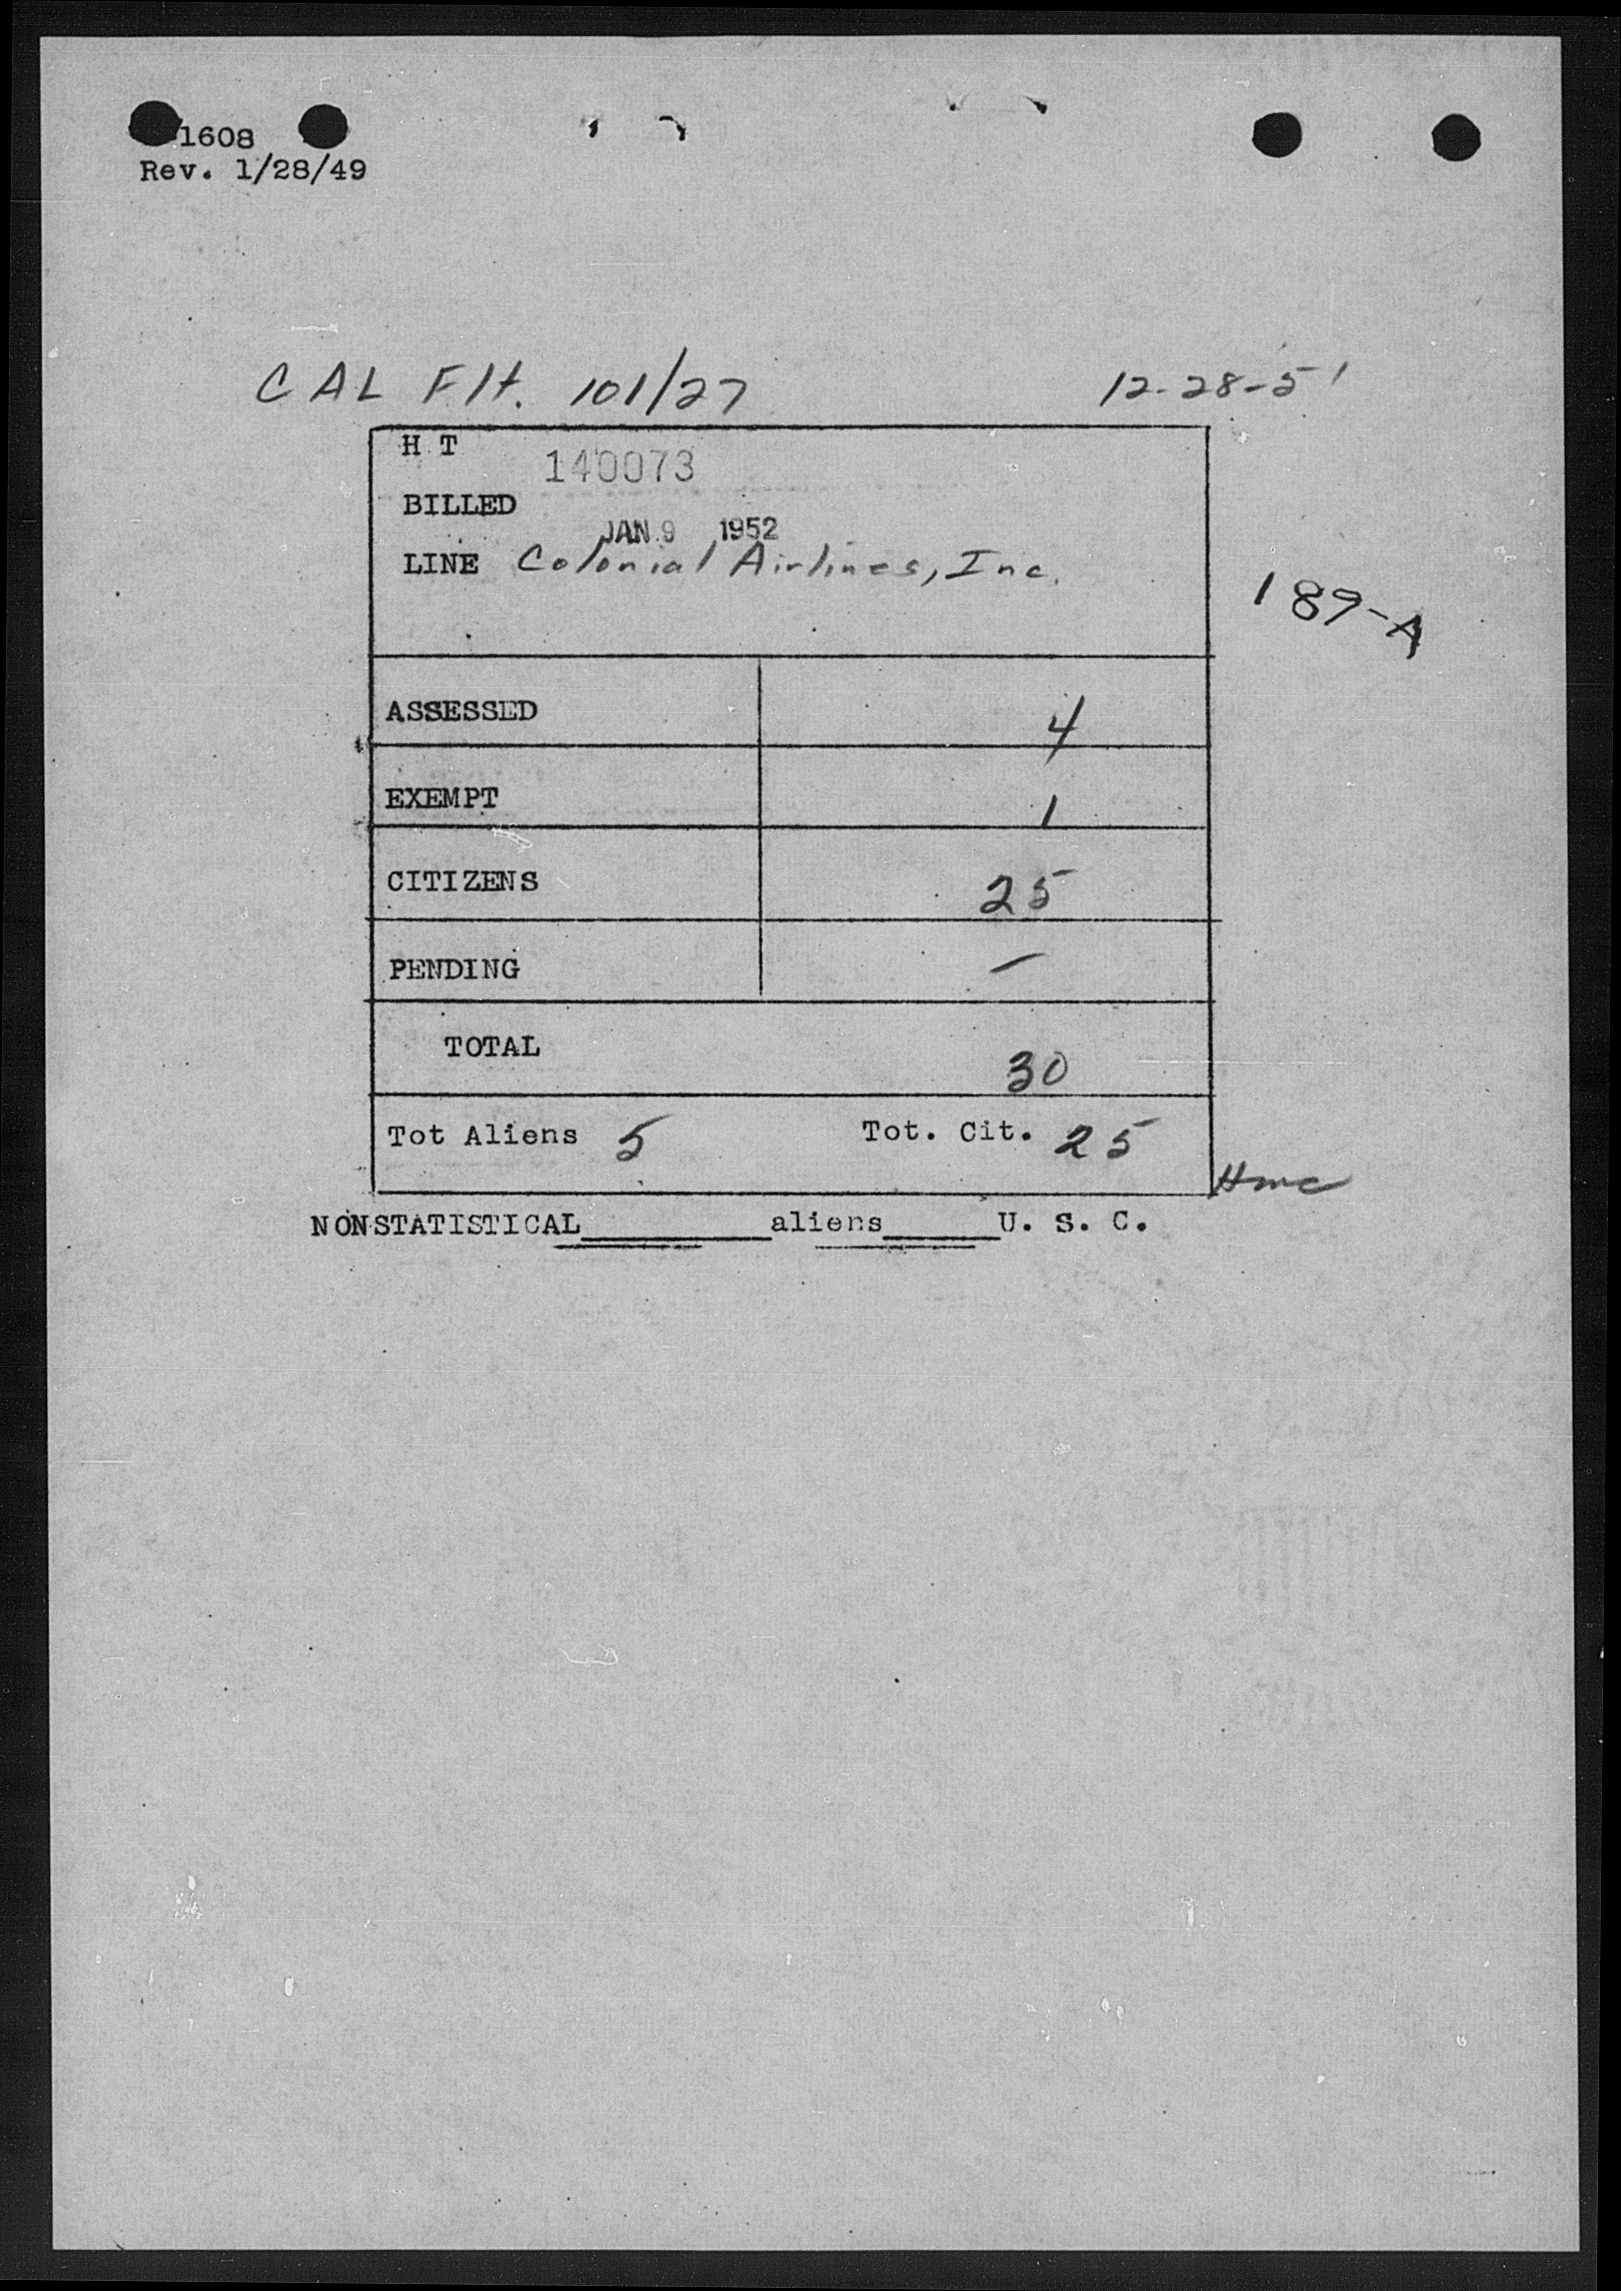 1608
Rev. 1/28/49
CAL Flt. 101/27 12-28-51
H T 140073
BILLED
JAN 9 1952
LINE Colonial Airlines, Inc.
189-A
ASSESSED 4
EXEMPT 1
CITIZENS 25
PENDING —
TOTAL 30
Tot Aliens 5 Tot. Cit. 25
Hmc
NONSTATISTICAL______aliens______U. S. C.